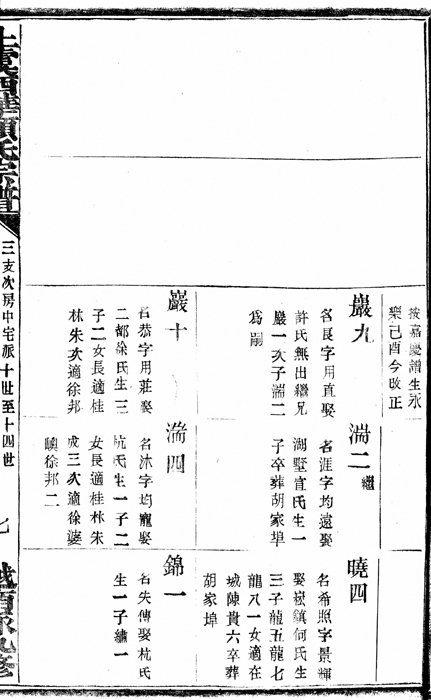 按嘉慶譜生永
樂己酉今改正
巖九
名長字用直娶
許氏無出繼兄
巖一次子湍二
為嗣
湍二繼
名涯字均遠娶
湖墅宣氏生一
子卒葬胡家埠
曉四
名希照字景輝
娶嶽鎮何氏生
三子龍五龍七
龍八一女適在
城陳貴六卒葬
胡家埠
巖十
名恭字用莊娶
二都徐氏生三
子二女長適桂
林朱次適徐邦
湍四
名沐字均寵娶
杭氏生一子二
女長適桂林朱
成三次適徐婆
嶼徐邦二
錦一
名失傳娶杭氏
生一子繡一
顧氏宗譜
三支次房中宅派十世至十四世
七